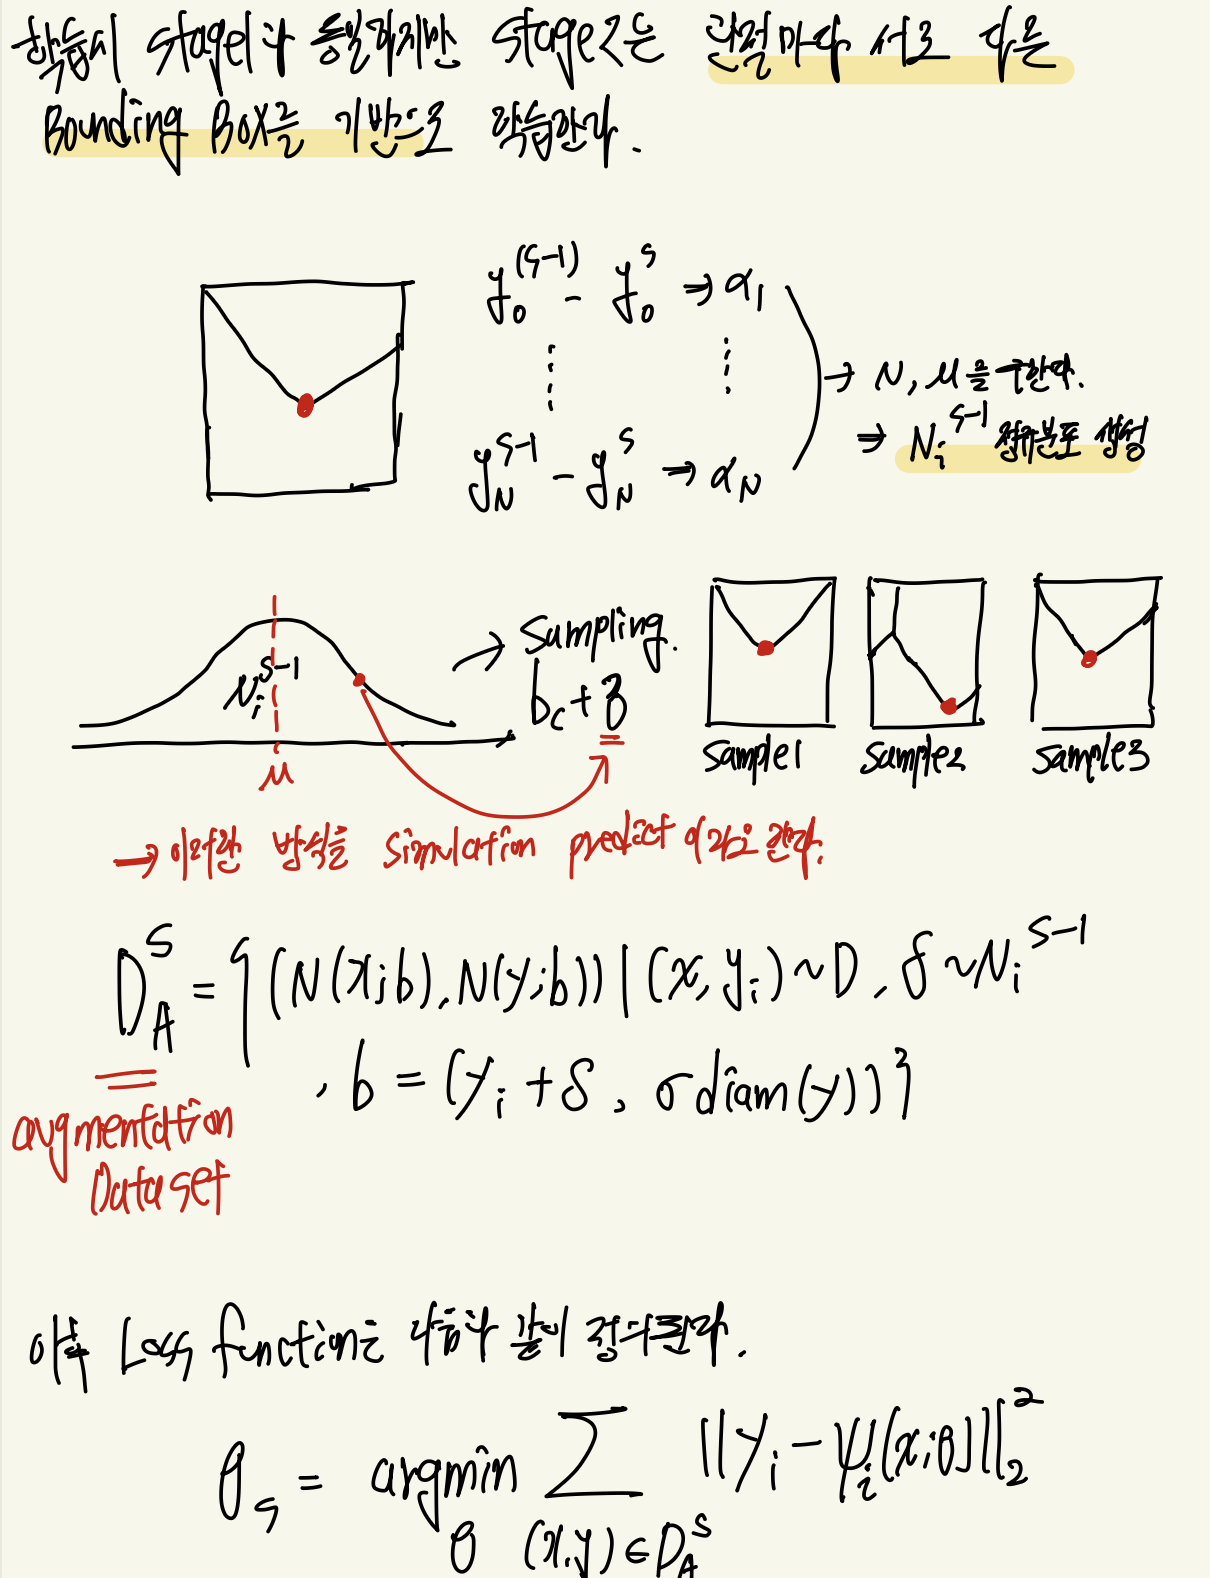 학습시 stage1과 동일하지만 stage2는 관절마다 서로 다른
Bounding Box를 기반으로 학습한다.
y₀^(S-1) - y₀^S ⇒ α₁
⋮ ⋮
→ N, μ을 구한다.
⇒ Nᵢ^S-1 정규분포 생성
y_N^S-1 - y_N^S ⇒ α_N
Nᵢ^S-1
μ
→ Sampling.
b_c + δ
sample1 sample2 sample3
→ 이러한 방식을 simulation predict 이라고 한다.
D_A^S = {(N(x;b), N(yᵢ;b)) | (x, yᵢ) ~ D, δ ~ Nᵢ^S-1
, b = (yᵢ + δ, σ diam(y))}
augmentation
Dataset
이후 Loss function은 다음과 같이 정의된다.
θ_S = argmin Σ ||yᵢ - ψᵢ(x;θ)||₂²
θ (x,y) ∈ D_A^S